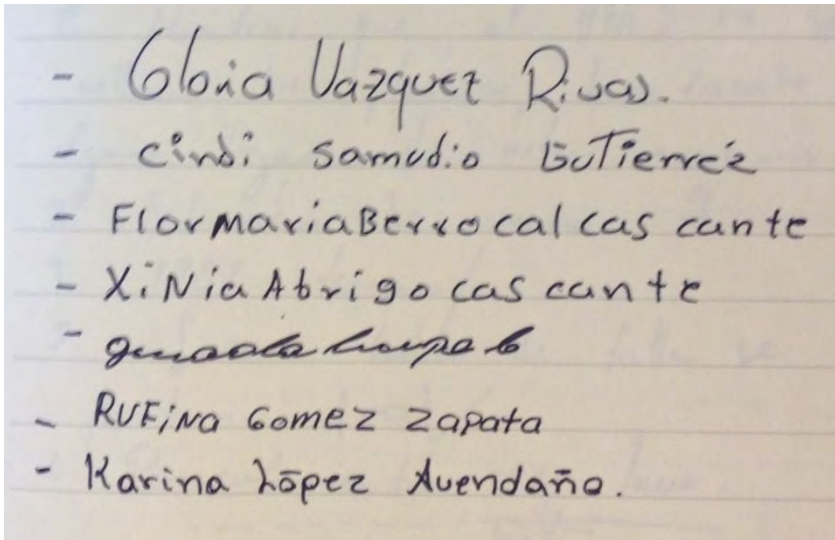 - Gloria Vazquez Rivas.
- Cindi Samudio Gutierrez
- Flor Maria Berrocal cas cante
- XiNia Abrigo cas cante
-
- RUFiNa Gomez Zapata
- Karina López Avendaño.